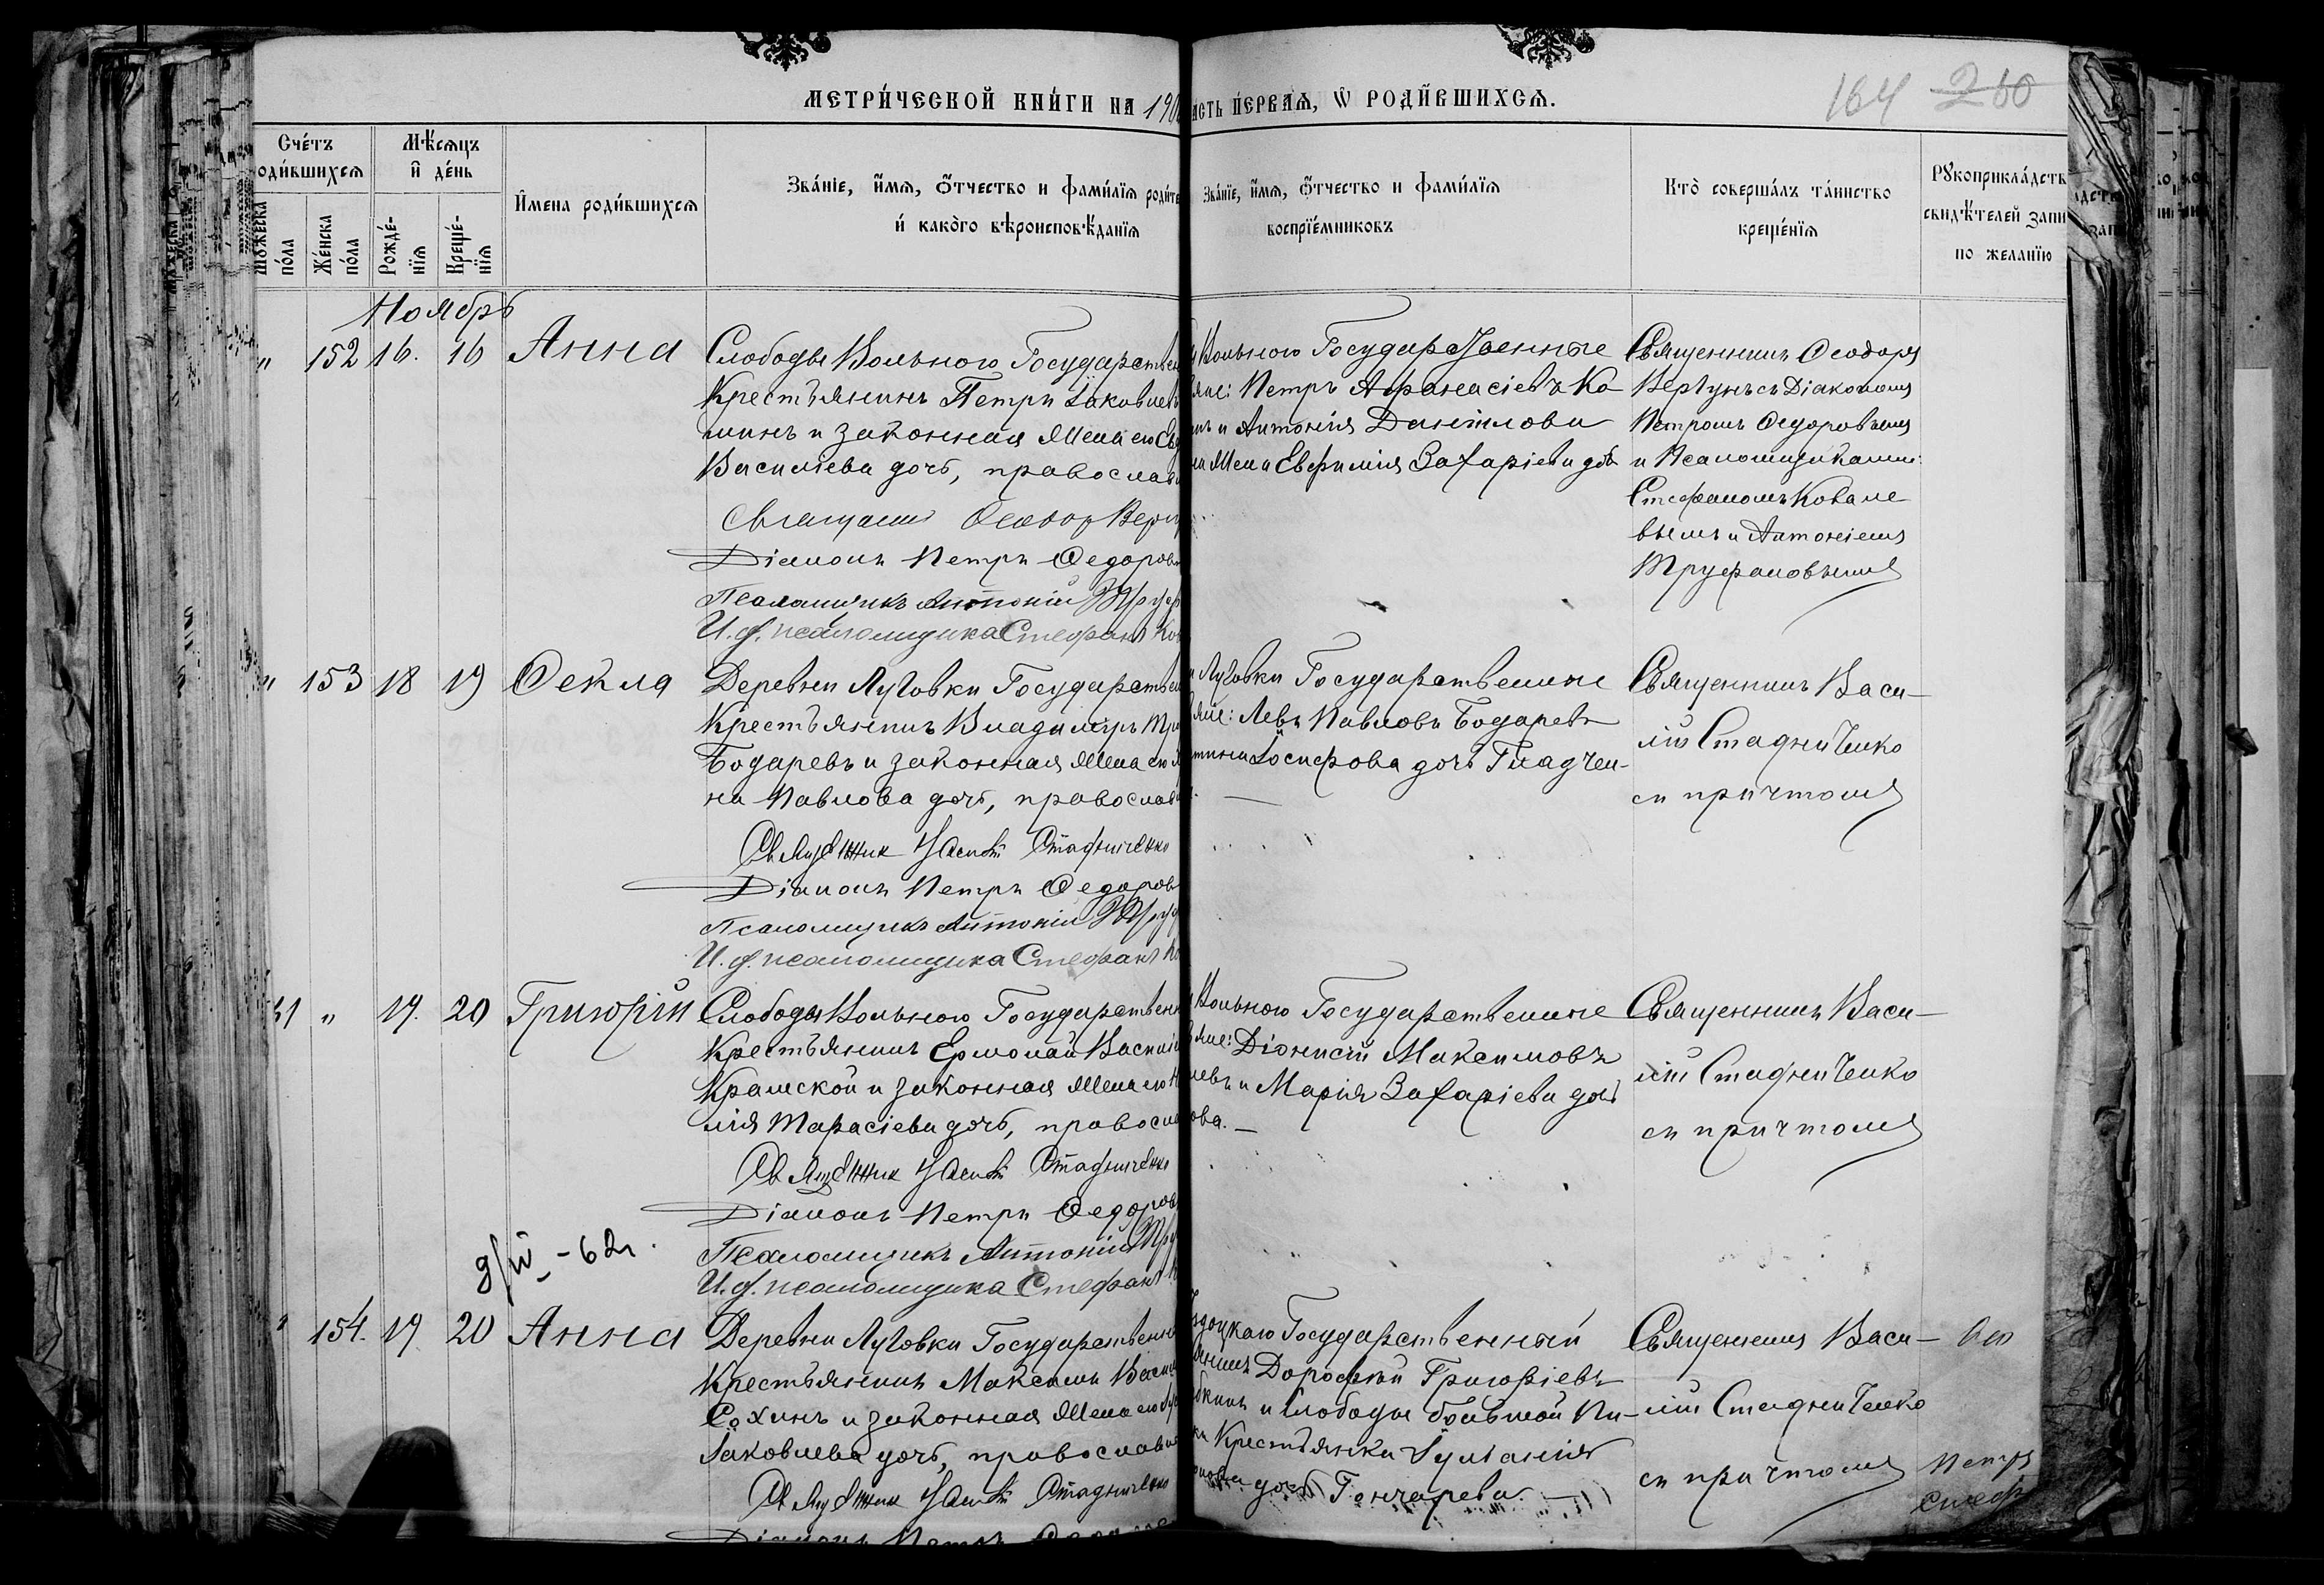 МЕТРИ́ЧЕСКОЙ КНИ́ГИ НА 190
АСТЬ ПЕ́РВАЯ, Ѿ РОДИ́ВШИХСЯ.
164 260
Сче́тъ
оди́вшихся
Мꙋ́жеска
по́ла
Же́нска
по́ла
Мѣ́сяцъ
и де́нь
Рожде́-
нїя
Креще́-
нїя
И́мена роди́вшихся
Зва́нїе, и́мя, ѻ́тчество и фами́лїя роди́те
и́ како́го вѣроисповѣ́данїя
Зва́нїе, и́мя, ѻ́тчество и фами́лїя
воспрїе́мниковъ
Кто̀ соверша́лъ та́инство
креще́нїя
Рꙋкоприкла́дств
свидѣ́телей запи
по жела́нїю
Ноябрь
" 152 16. 16 Анна
Слободы Вольного Государствен
Крестьянинъ Петръ Іаковлевъ
минъ и законная жена его
Васильева дочь, православ
Священникъ Ѳеодор Верг
Діаконъ Петръ Ѳедоров
Псаломщикъ Антоній Труф
И. д. псаломщика Стефанъ Ков
Вольного Государственные
яне: Петръ Аѳанасіевъ Ко
и Антонія Данілова
жена Евфимія Захаріева дочь
Священникъ Ѳеодоръ
Вергунъ съ Діакономъ
Петромъ Ѳедоровымъ
и Псаломщиками:
Стефаномъ Ковале
вымъ и Антоніемъ
Труфановымъ
" 153 18 19 Ѳекла
Деревни Луговки Государствен
Крестьянинъ Владиміръ
Бодаревъ и законная жена его
на Павлова дочь, православ
Священник Василій Стадниченко
Діаконъ Петръ Ѳедоров
Псаломщикъ Антоній Труф
И. д. псаломщика Стефанъ Ко
Луговки Государственные
яне: Левъ Павловъ Бодаревъ
Іосифова дочь Гладчен-
Священникъ Васи-
лій Стадниченко
съ причтомъ
" 19. 20 Григорій
Слободы Вольного Государственн
Крестьянинъ Ермолай Василі
Крамской и законная жена его
лія Тарасіева дочь, правосла
Священник Василій Стадниченко
Діаконъ Петръ Ѳедоров
Псаломщикъ Антоній Тру
И. д. псаломщика Стефанъ
Вольного Государственные
яне: Діонисій Максимовъ
левъ и Марія Захаріева дочь
ова. —
Священникъ Васи-
лій Стадниченко
съ причтомъ
9/IV - 62г.
" 154. 19 20 Анна
Деревни Луговки Государственн
Крестьянинъ Максимъ Васил
Сохинъ и законная жена его
Іаковлева дочь, православн
Священник Василій Стадниченко
Діаконъ Петръ Ѳедоров
Государственный
Дороѳей Григоріевъ
и Слободы Большой Пи-
Крестьянка Іуліанія
дочь Гончарева. —
Священникъ Васи-
лій Стадниченко
съ причтомъ
Петръ
Стеф